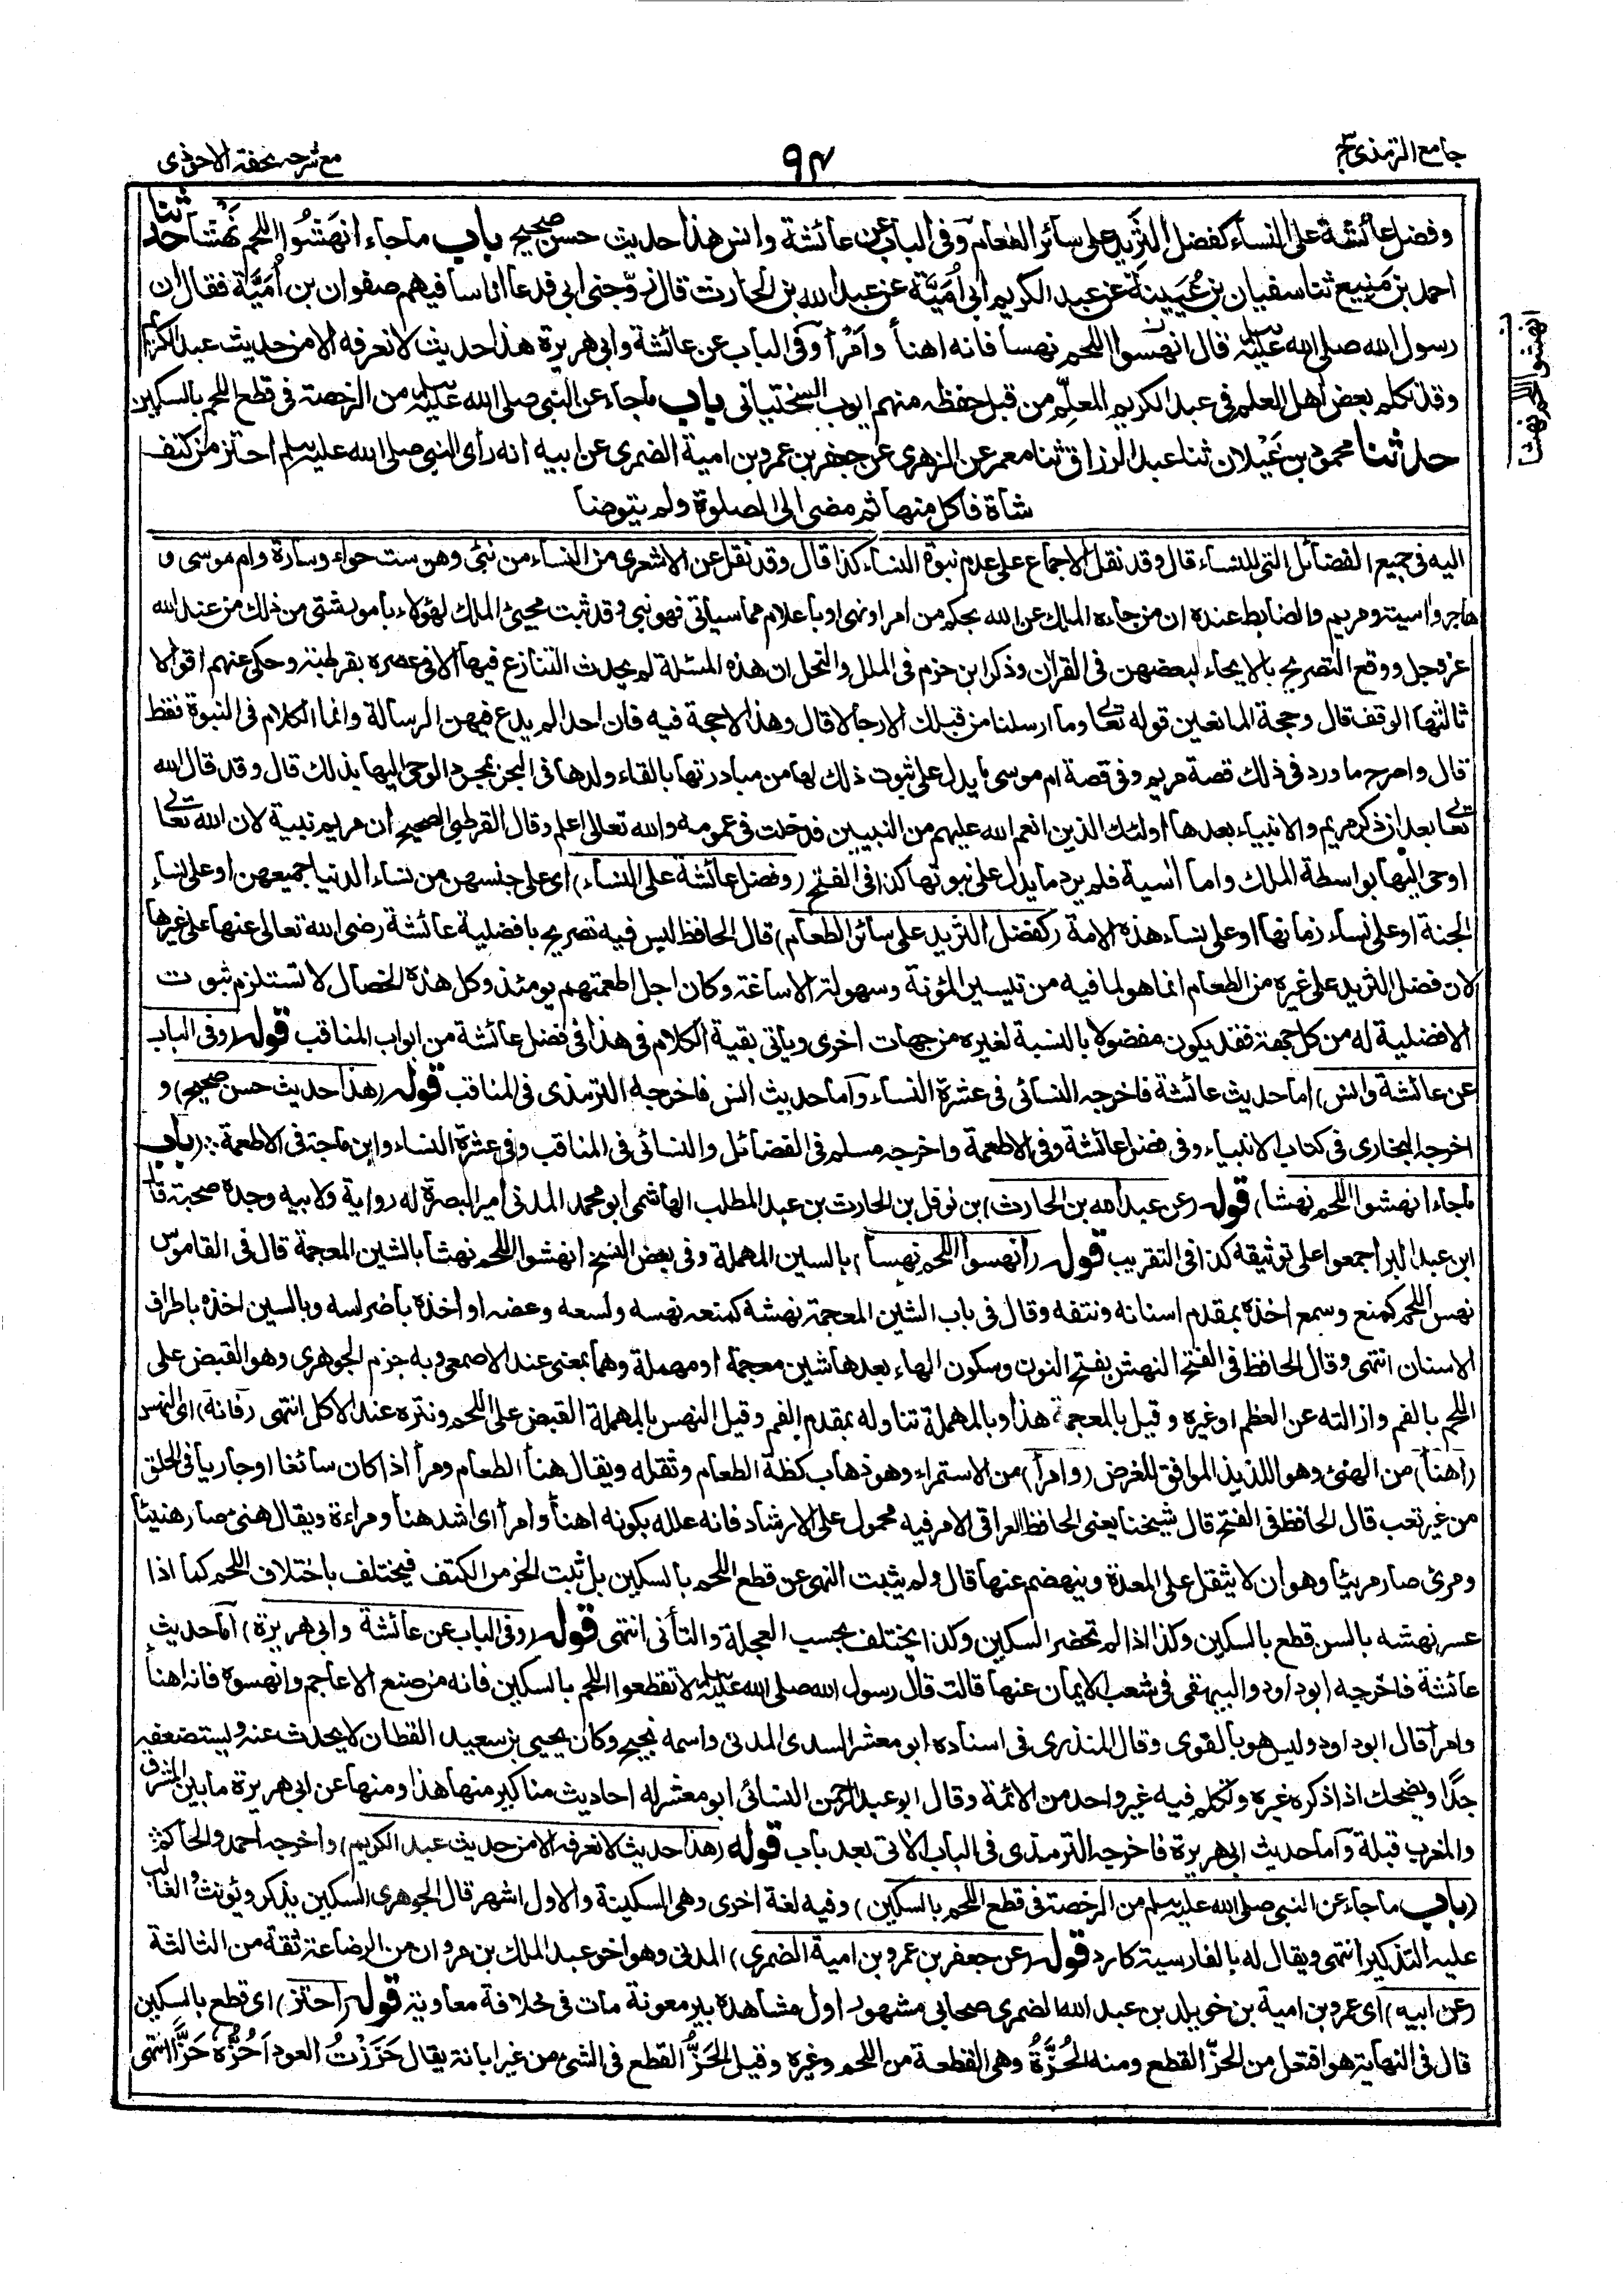 جامع الترمذی ج۳
۹۴
مع شرحہ تحفة الاحوذی
وفضل عائشة على النساء كفضل الثَّرِيد على سائر الطعام وفى الباب عن عائشة وانس هذا حديث حسن صحيح باب ماجاء انهَشُوا اللحم نَهْشًا حدثنا
احمد بن مَنِيع ثنا سفيان بن عُيَيْنَةَ عن عبد الكريم ابى أُمَيَّة عن عبد الله بن الحارث قال زوّجنى ابى فدعا اناسا فيهم صفوان بن أُمَيَّة فقال ان
رسول الله صلى الله عليه وسلم قال انهسوا اللحم نهسا فانه اهنأ وأمْرَأ وفى الباب عن عائشة وابى هريرة هذا حديث لا نعرفه الا من حديث عبد الكريم
وقد تكلم بعض اهل العلم فى عبد الكريم المعلِّم من قبل حفظه منهم ايوب السختيانى باب ماجاء عن النبى صلى الله عليه وسلم من الرخصة فى قطع اللحم بالسكين
حدثنا محمود بن غَيْلان ثنا عبد الرزاق ثنا معمر عن الزهرى عن جعفر بن عمرو بن امية الضمرى عن ابيه انه رأى النبى صلى الله عليه وسلم احتز من كتف
شاة فاكل منها ثم مضى الى الصلوة ولم يتوضأ
انهشوا اللحم نهشا
اليه فى جميع الفضائل التى للنساء قال وقد نقل الاجماع على عدم نبوة النساء كذا قال وقد نقل عن الاشعرى من النساء من نبئ وهن ست حواء وسارة وام موسى و
هاجر وآسية ومريم والضابط عنده ان من جاءه الملك عن الله بحكم من امر او نهى او باعلام مما سيأتى فهو نبى وقد ثبت مجيئ الملك لهؤلاء بامور شتى من ذلك من عند الله
عز وجل ووقع التصريح بالايحاء لبعضهن فى القرآن وذكر ابن حزم فى الملل والنحل ان هذه المسئلة لم يحدث التنازع فيها الا فى عصره بقرطبة وحكى عنهم اقوالا
ثالثها الوقف قال وحجة المانعين قوله تعالى وما ارسلنا من قبلك الا رجالا قال وهذا لا حجة فيه فان احدا لم يدع فيهن الرسالة وانما الكلام فى النبوة فقط
قال واصرح ما ورد فى ذلك قصة مريم وفى قصة ام موسى ما يدل على ثبوت ذلك لها من مبادرتها بالقاء ولدها فى البحر بمجرد الوحى اليها بذلك قال وقد قال الله
تعالى بعد ان ذكر مريم والانبياء بعدها اولئك الذين انعم الله عليهم من النبيين فدخلت فى عمومه والله تعالى اعلم وقال القرطبى الصحيح ان مريم نبية لان الله تعالى
اوحى اليها بواسطة الملك واما آسية فلم يرد ما يدل على نبوتها كذا فى الفتح (وفضل عائشة على النساء) اى على جنسهن من نساء الدنيا جميعهن او على نساء
الجنة او على نساء زمانها او على نساء هذه الامة (كفضل الثريد على سائر الطعام) قال الحافظ ليس فيه تصريح بافضلية عائشة رضى الله تعالى عنها على غيرها
لان فضل الثريد على غيره من الطعام انما هو لما فيه من تيسير المؤنة وسهولة الاساغة وكان اجل اطعمتهم يومئذ وكل هذه الخصال لا تستلزم ثبوت
الافضلية له من كل جهة فقد يكون مفضولا بالنسبة لغيره من جهات اخرى ويأتى بقية الكلام فى هذا فى فضل عائشة من ابواب المناقب قوله (وفى الباب
عن عائشة وانس) اما حديث عائشة فاخرجه النسائى فى عشرة النساء وأما حديث انس فاخرجه الترمذى فى المناقب قوله (هذا حديث حسن صحيح) و
اخرجه البخارى فى كتاب الانبياء وفى فضل عائشة وفى الاطعمة واخرجه مسلم فى الفضائل والنسائى فى المناقب وفى عشرة النساء وابن ماجة فى الاطعمة ∴ (باب
ماجاء انهشوا اللحم نهشا) قوله (عن عبد الله بن الحارث) ابن نوفل بن الحارث بن عبد المطلب الهاشمى ابو محمد المدنى امير البصرة له رواية ولابيه وجده صحبة قال
ابن عبد البر اجمعوا على توثيقه كذا فى التقريب قوله (انهسوا اللحم نهسا) بالسين المهملة وفى بعض النسخ انهشوا اللحم نهشا بالشين المعجمة قال فى القاموس
نهس اللحم كمنع وسمع اخذه بمقدم اسنانه ونتفه وقال فى باب الشين المعجمة نهشه كمنعه نهسه ولسعه وعضه او اخذه باضراسه وبالسين اخذه باطراف
الاسنان انتهى وقال الحافظ فى الفتح النهش بفتح النون وسكون الهاء بعدها شين معجمة او مهملة وهما بمعنى عند الاصمعى وبه جزم الجوهرى وهو القبض على
اللحم بالفم وازالته عن العظم او غيره وقيل بالمعجمة هذا وبالمهملة تناوله بمقدم الفم وقيل النهس بالمهملة القبض على اللحم ونتره عند الاكل انتهى (فانه) اى النهس
(اهنأ) من الهنئ وهو اللذيذ الموافق للغرض (وامرأ) من الاستمراء وهو ذهاب كظة الطعام وثقله ويقال هنأ الطعام ومرأ اذا كان سائغا او جاريا فى الحلق
من غير تعب قال الحافظ فى الفتح قال شيخنا يعنى الحافظ العراقى الامر فيه محمول على الارشاد فانه علله بكونه اهنأ وامرأ اى اشد هنأ ومراءة ويقال هنئ صار هنيئا
ومرئ صار مريئا وهو ان لا يثقل على المعدة وينهضم عنها قال ولم يثبت النهى عن قطع اللحم بالسكين بل ثبت الحز من الكتف فيختلف باختلاف اللحم كما اذا
عسر نهشه بالسن قطع بالسكين وكذا اذا لم تحضر السكين وكذا يختلف بحسب العجلة والتأنى انتهى قوله (وفى الباب عن عائشة وابى هريرة) أما حديث
عائشة فاخرجه ابو داود والبيهقى فى شعب الايمان عنها قالت قال رسول الله صلى الله عليه وسلم لا تقطعوا اللحم بالسكين فانه من صنع الاعاجم وانهسوه فانه اهنأ
وامرأ قال ابو داود وليس هو بالقوى وقال المنذرى فى اسناده ابو معشر السدى المدنى واسمه نجيح وكان يحيى بن سعيد القطان لا يحدث عنه ويستضعفه
جدًا ويضحك اذا ذكره غيره وتكلم فيه غير واحد من الائمة وقال ابو عبد الرحمن النسائى ابو معشر له احاديث مناكير منها هذا ومنها عن ابى هريرة ما بين المشرق
والمغرب قبلة وأما حديث ابى هريرة فاخرجه الترمذى فى الباب الآتى بعد باب قوله (هذا حديث لا نعرفه الا من حديث عبد الكريم) واخرجه احمد والحاكم
(باب ماجاء عن النبى صلى الله عليه وسلم من الرخصة فى قطع اللحم بالسكين) وفيه لغة اخرى وهى السكينة والاول اشهر قال الجوهرى السكين يذكر ويؤنث والغالب
عليه التذكير انتهى ويقال له بالفارسية كارد قوله (عن جعفر بن عمرو بن امية الضمرى) المدنى وهو اخو عبد الملك بن مروان من الرضاعة ثقة من الثالثة
(عن ابيه) اى عمرو بن امية بن خويلد بن عبد الله الضمرى صحابى مشهور اول مشاهده بير معونة مات فى خلافة معاوية قوله (احتز) اى قطع بالسكين
قال فى النهاية هو افتعل من الحزّ القطع ومنه الحُزَّةُ وهى القطعة من اللحم وغيره وقيل الحَزُّ القطع فى الشئ من غير ابانة يقال حَزَزْتُ العود اَحُزُّه حَزًّا انتهى